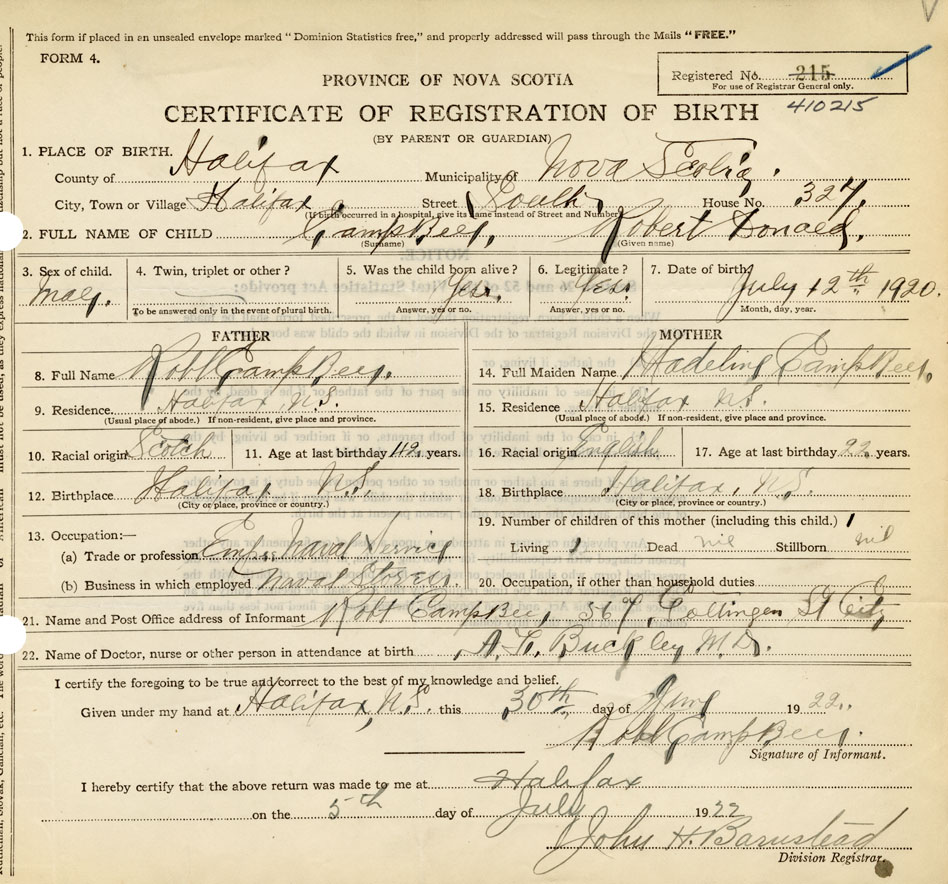 This form if placed in an unsealed envelope marked "Dominion Statistics free," and properly addressed will pass through the Mails "FREE."
FORM 4.
Registered No. 215
For use of Registrar General only.
410215
PROVINCE OF NOVA SCOTIA
CERTIFICATE OF REGISTRATION OF BIRTH
(BY PARENT OR GUARDIAN)
1. PLACE OF BIRTH.
County of Halifax Municipality of Nova Scotia.
City, Town or Village Halifax Street South House No. 327.
(If birth occurred in a hospital, give its name instead of Street and Number)
2. FULL NAME OF CHILD Campbell, Robert Donald.
(Surname) (Given name)
3. Sex of child. Male.
4. Twin, triplet or other?
To be answered only in the event of plural birth.
5. Was the child born alive? Yes.
Answer, yes or no.
6. Legitimate? Yes.
Answer, yes or no.
7. Date of birth July 12th 1920.
Month, day, year.
FATHER
8. Full Name Robt Campbell.
9. Residence. Halifax N.S.
(Usual place of abode.) If non-resident, give place and province.
10. Racial origin Scotch
11. Age at last birthday years.
12. Birthplace Halifax N.S.
(City or place, province or country.)
13. Occupation:—
(a) Trade or profession Naval Service
(b) Business in which employed Naval Stores.
MOTHER
14. Full Maiden Name Madeline Campbell.
15. Residence Halifax N.S.
(Usual place of abode.) If non-resident, give place and province.
16. Racial origin English
17. Age at last birthday 22 years.
18. Birthplace Halifax, N.S.
(City or place, province or country.)
19. Number of children of this mother (including this child.) 1
Living 1 Dead nil Stillborn nil
20. Occupation, if other than household duties
21. Name and Post Office address of Informant Robt Campbell, Gottingen St City
22. Name of Doctor, nurse or other person in attendance at birth Buckley M.D.
I certify the foregoing to be true and correct to the best of my knowledge and belief.
Given under my hand at Halifax, N.S. this 30th day of June 1922.
Robt Campbell.
Signature of Informant.
I hereby certify that the above return was made to me at Halifax
on the 5th day of July 1922
John H. Barnstead
Division Registrar.